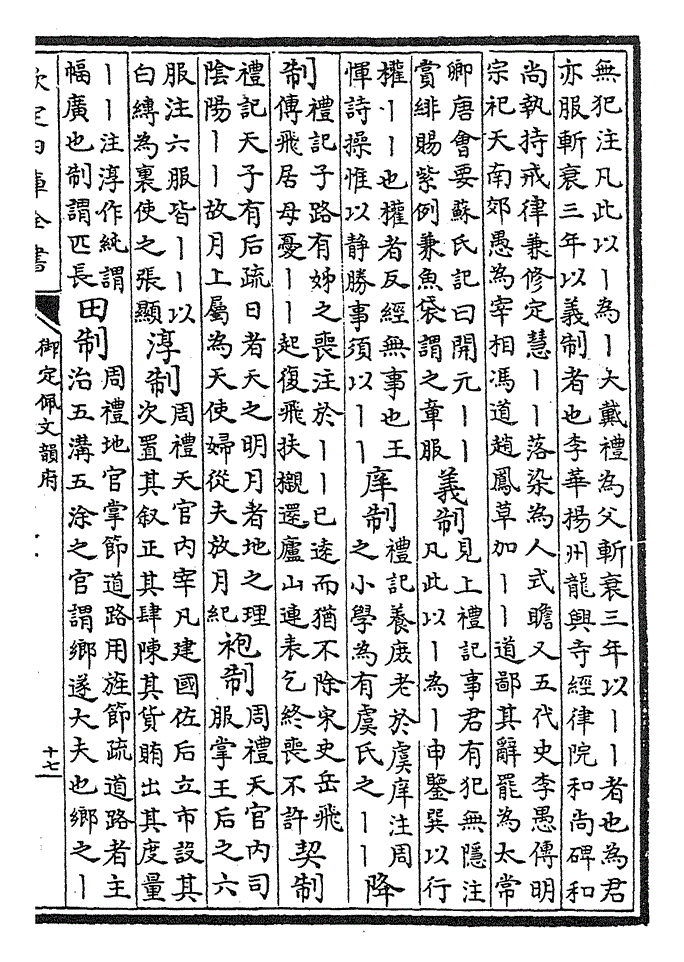 無犯注凡此以丨為丨大戴禮為父斬衰三年以丨丨者也為君
亦服斬衰三年以義制者也李華揚州龍興寺經律院和尚碑和
尚執持戒律兼修定慧丨丨落染為人式瞻又五代史李愚傳明
宗祀天南郊愚為宰相馮道趙鳳草加丨丨道鄙其辭罷為太常
卿唐會要蘇氏記曰開元丨丨
賞緋賜紫例兼魚袋謂之章服
義制
見上禮記事君有犯無隱注
凡此以丨為丨申鑒巽以行
權丨丨也權者反經無事也王
惲詩操惟以静勝事須以丨丨
庠制
禮記養庶老於虞庠注周
之小學為有虞氏之丨丨
降
制
禮記子路有姊之喪注於丨丨已逺而猶不除宋史岳飛
傳飛居母憂丨丨起復飛扶櫬還廬山連表乞終喪不許
契制
禮記天子有后疏日者天之明月者地之理
陰陽丨丨故月上屬為天使婦從夫放月紀
袍制
周禮天官内司
服掌王后之六
服注六服皆丨丨以
白縳為裏使之張顯
淳制
周禮天官内宰凡建國佐后立市設其
次置其叙正其肆陳其貨賄出其度量
丨丨注淳作純謂
幅廣也制謂匹長
田制
周禮地官掌節道路用旌節疏道路者主
治五溝五涂之官謂鄉遂大夫也鄉之丨
欽定四庫全書
御定佩文韻府
十七